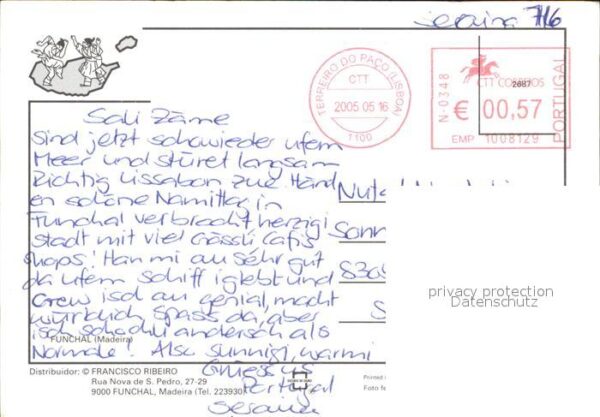 seraina 7/16
TERREIRO DO PAÇO (LISBOA)
CTT
2005 05 16
1100
N-0348
2687
CTT CORREIOS
€ 00,57
EMP 1008129
PORTUGAL
Sali Zäme
Sind jetzt scho wieder ufem
Meer und stüret langsam
Richtig Lissabon zue. Händ
en schöne Namittag in
Funchal verbracht herzigi
stadt mit viel Gässli Cafis
shops! Han mi au sehr gut
da ufem Schiff iglebt und
Crew isch au genial, macht
würklich Spass da, aber
isch scho chli andersch als
Normale! Also sunnigi, warmi
Grüess us
Portugal
Seraina
Sonn
8369
S
privacy protection
Datenschutz
FUNCHAL (Madeira)
Distribuidor: © FRANCISCO RIBEIRO
Rua Nova de S. Pedro, 27-29
9000 FUNCHAL, Madeira (Tel. 223930)
Printed
Foto